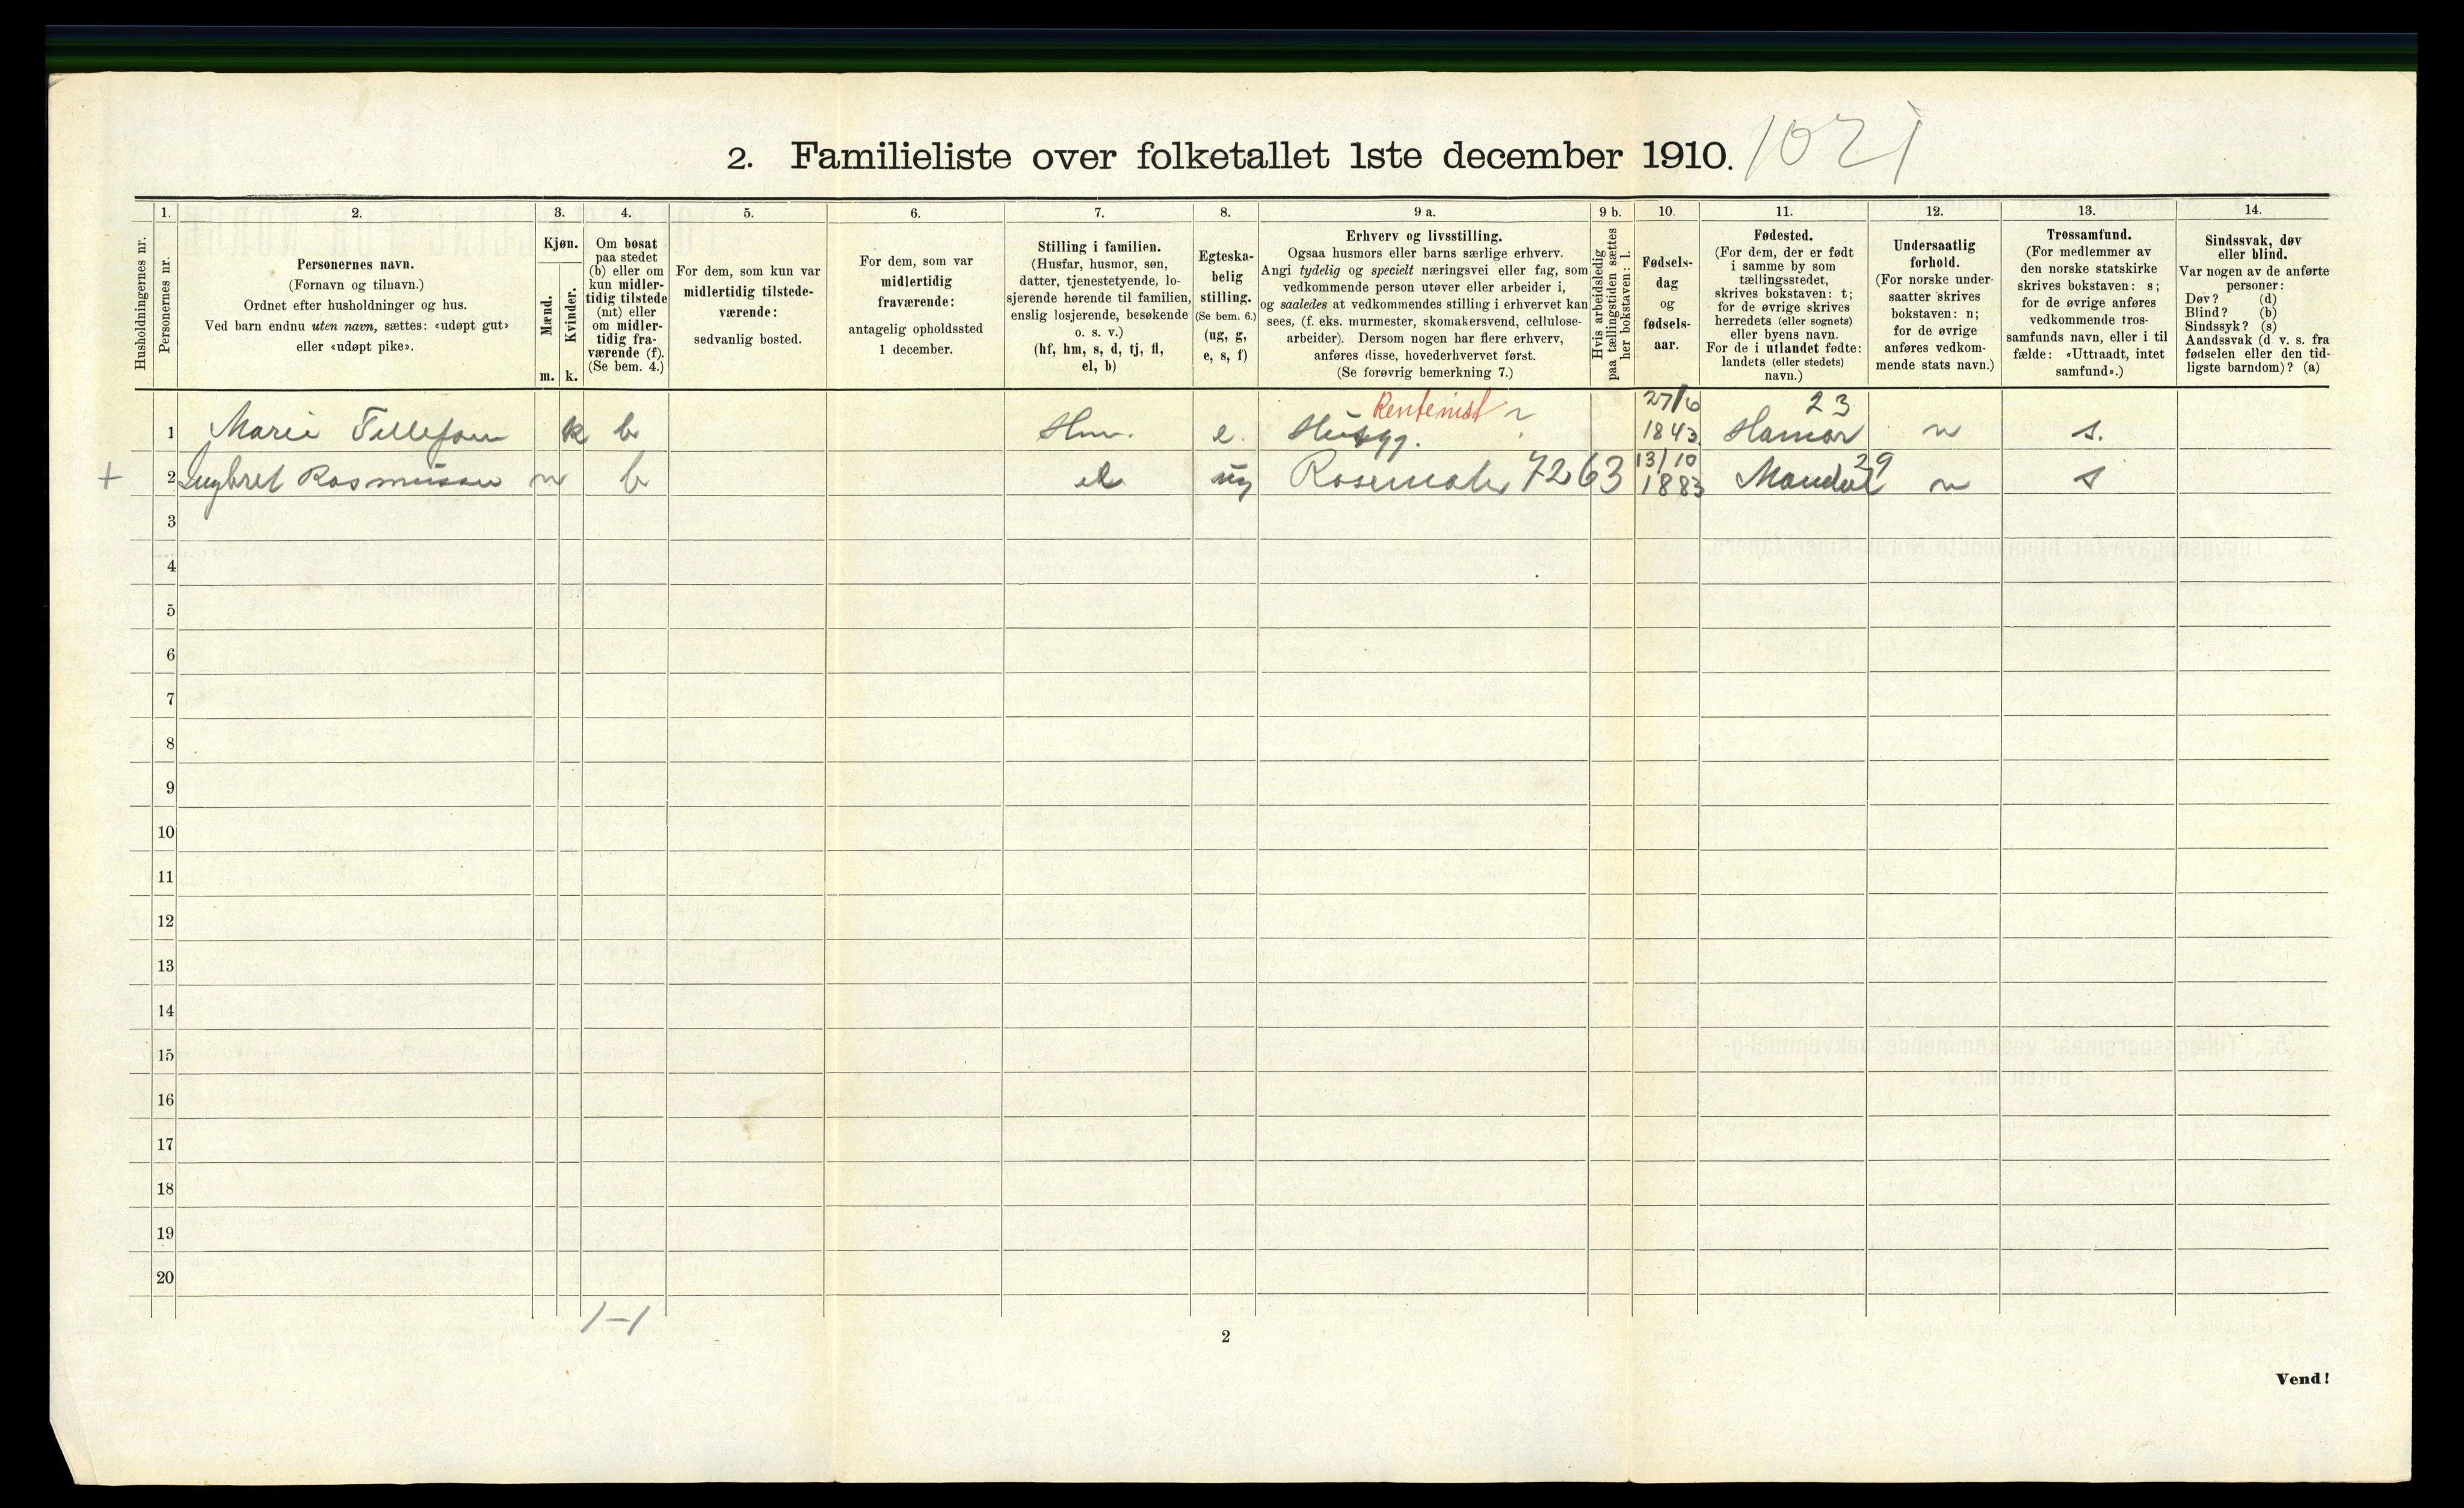 2. Familieliste over folketallet 1ste december 1910.
1. 2. 3. 4. 5. 6. 7. 8. 9 a. 9 b. 10. 11. 12. 13. 14.
Husholdningernes nr.
Personernes nr.
Personernes navn.
(Fornavn og tilnavn.)
Ordnet efter husholdninger og hus.
Ved barn endnu uten navn, sættes: «udøpt gut»
eller «udøpt pike».
Kjøn.
Mænd.
Kvinder.
m. k.
Om bosat
paa stedet
(b) eller om
kun midler-
tidig tilstede
(mt) eller
om midler-
tidig fra-
værende (f).
(Se bem. 4.)
For dem, som kun var
midlertidig tilstede-
værende:
sedvanlig bosted.
For dem, som var
midlertidig
fraværende:
antagelig opholdssted
1 december.
Stilling i familien.
(Husfar, husmor, søn,
datter, tjenestetyende, lo-
sjerende hørende til familien,
enslig losjerende, besøkende
o. s. v.)
(hf, hm, s, d, tj, fl,
el, b)
Egteska-
belig
stilling.
(Se bem. 6.)
(ug, g,
e, s, f)
Erhverv og livsstilling.
Ogsaa husmors eller barns særlige erhverv.
Angi tydelig og specielt næringsvei eller fag, som
vedkommende person utøver eller arbeider i,
og saaledes at vedkommendes stilling i erhvervet kan
sees, (f. eks. murmester, skomakersvend, cellulose-
arbeider). Dersom nogen har flere erhverv,
anføres disse, hovederhvervet først.
(Se forøvrig bemerkning 7.)
Hvis arbeidsledig
paa tællingstiden sættes
her bokstaven: l.
Fødsels-
dag
og
fødsels-
aar.
Fødested.
(For dem, der er født
i samme by som
tællingsstedet,
skrives bokstaven: t;
for de øvrige skrives
herredets (eller sognets)
eller byens navn.
For de i utlandet fødte:
landets (eller stedets)
navn.)
Undersaatlig
forhold.
(For norske under-
saatter skrives
bokstaven: n;
for de øvrige
anføres vedkom-
mende stats navn.)
Trossamfund.
(For medlemmer av
den norske statskirke
skrives bokstaven: s;
for de øvrige anføres
vedkommende tros-
samfunds navn, eller i til
fælde: «Uttraadt, intet
samfund».)
Sindssvak, døv
eller blind.
Var nogen av de anførte
personer:
Døv? (d)
Blind? (b)
Sindssyk? (s)
Aandssvak (d v. s. fra
fødselen eller den tid-
ligste barndom)? (a)
Rentenist 27/6 23
1 Marie Tellefsen k b Hm. e. 1843 Hamar n s.
13/10 29
+ 2 Ingbret Rasmussen m b el ug Rosemaler 7263 1883 Mandal n s
3
4
5
6
7
8
9
10
11
12
13
14
15
16
17
18
19
20
1-1
2
Vend!